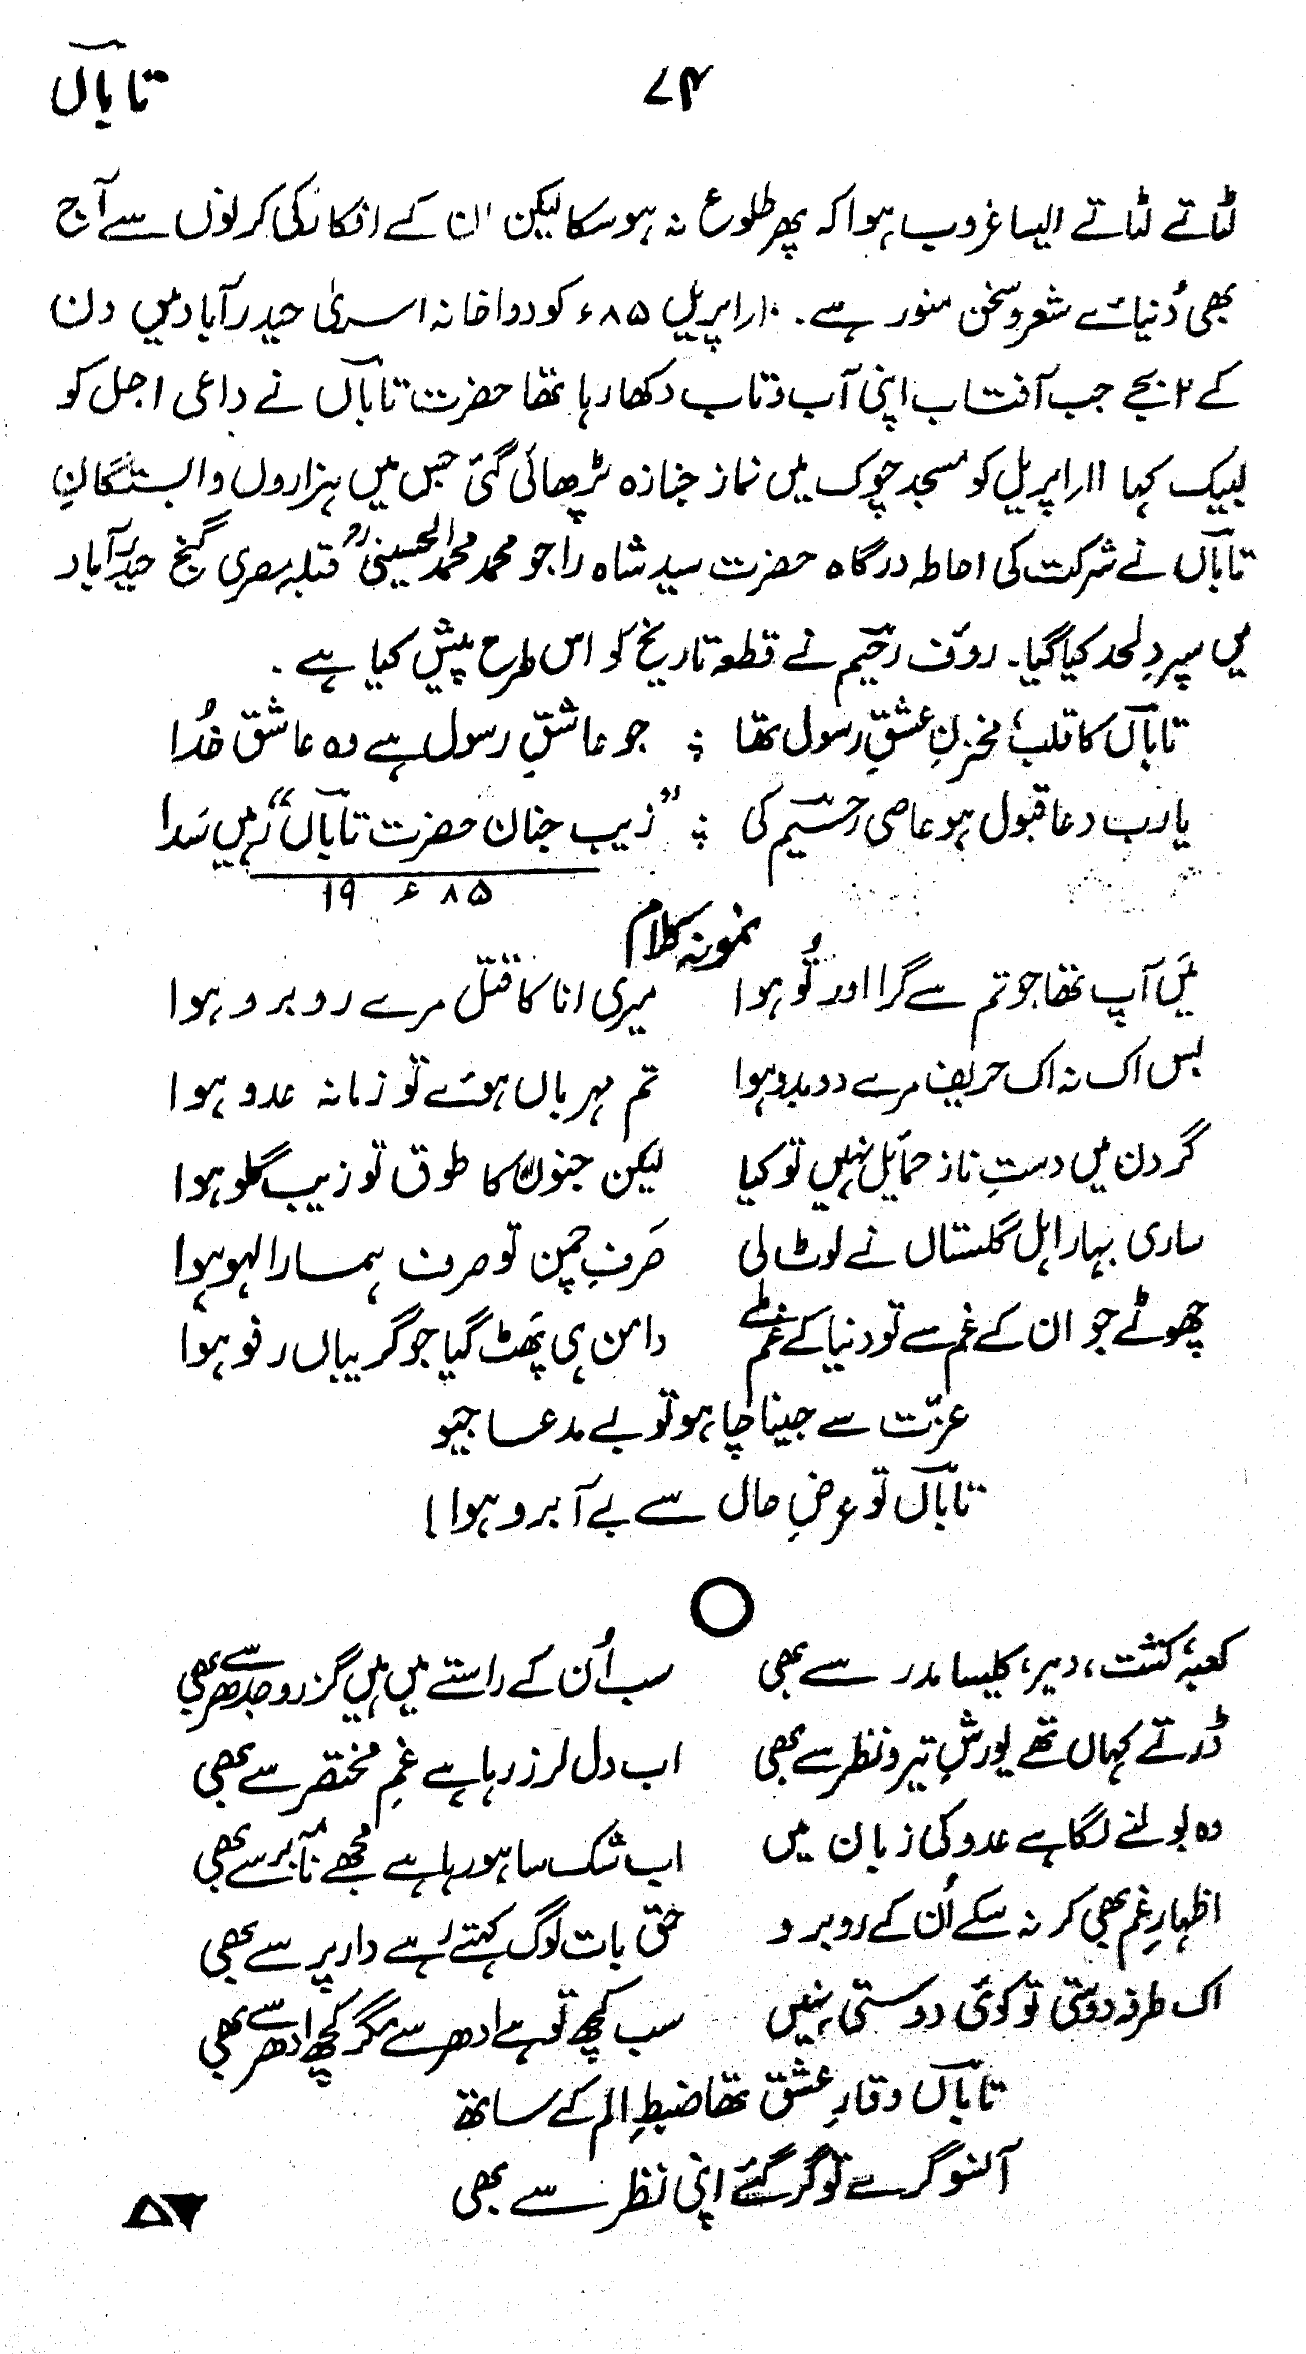 ۷۴ تاباںؔ
لٹاتے لٹاتے ایسا غروب ہوا کہ پھر طلوع نہ ہو سکا لیکن ان کے افکار کی کرنوں سے آج
بھی دُنیائے شعر و سخن منور ہے۔ ۱۰؍اپریل ۸۵ء کو دواخانہ اسریٰ حیدرآباد میں دن
کے ۲ بجے جب آفتاب اپنی آب و تاب دکھا رہا تھا حضرت تاباںؔ نے داعی اجل کو
لبیک کہا ۱۱؍اپریل کو مسجد چوک میں نماز جنازہ پڑھائی گئی جس میں ہزاروں وابستگانِ
تاباںؔ نے شرکت کی احاطہ درگاہ حضرت سید شاہ راجو محمد محمد الحسینیؒ قبلہ مصری گنج حیدرآباد
میں سپردِ لحد کیا گیا۔ روؔف رحیمؔ نے قطعہ تاریخ کو اس طرح پیش کیا ہے۔
تاباںؔ کا قلب مخزنِ عشقِ رسول تھا ؛ جو عاشقِ رسول ہے وہ عاشق خُدا
یارب دعا قبول ہو عاصی رحیمؔ کی ؛ "زیب جنان حضرت تاباںؔ" رہیں سَدا
۱۹ ۸۵ ء
نمونہ کلام
مَیں آپ تھا جو تم سے گرا اور تُو ہوا میری انا کا قتل مرے روبرو ہوا
بس اک نہ اک حریف مرے دوبدو ہوا تم مہرباں ہوئے تو زمانہ عدو ہوا
گردن میں دستِ ناز حمائل نہیں تو کیا لیکن جنوں کا طوق تو زیب گلو ہوا
ساری بہار اہل گلستاں نے لوٹ لی صَرفِ چمن تو صرف ہمارا لہو ہوا
چھوٹے جو ان کے غم سے تو دنیا کے غم ملے دامن ہی پھٹ گیا جو گریباں رفو ہوا
عزّت سے جینا چاہو تو بے مدعا جیو
تاباںؔ تو عرضِ حال سے بے آبرو ہوا!
کعبۂ کنشت، دیر، کلیسا مدر سے بھی سب اُن کے راستے میں ہیں گزرو جدھر سے بھی
ڈرتے کہاں تھے یورشِ تیر و نظر سے بھی اب دل لرز رہا ہے غمِ مختصر سے بھی
وہ بولنے لگا ہے عدو کی زبان میں اب شک سا ہو رہا ہے مجھے نامہ بر سے بھی
اظہارِ غم بھی کر نہ سکے اُن کے روبرو حق بات لوگ کہتے رہے دار پر سے بھی
اک طرفہ دوستی تو کوئی دوستی نہیں سب کچھ تو ہے ادھر سے مگر کچھ ادھر سے بھی
تاباںؔ وقارِ عشق تھا ضبطِ الم کے ساتھ
آنسو گرے تو گر گئے اپنی نظر سے بھی